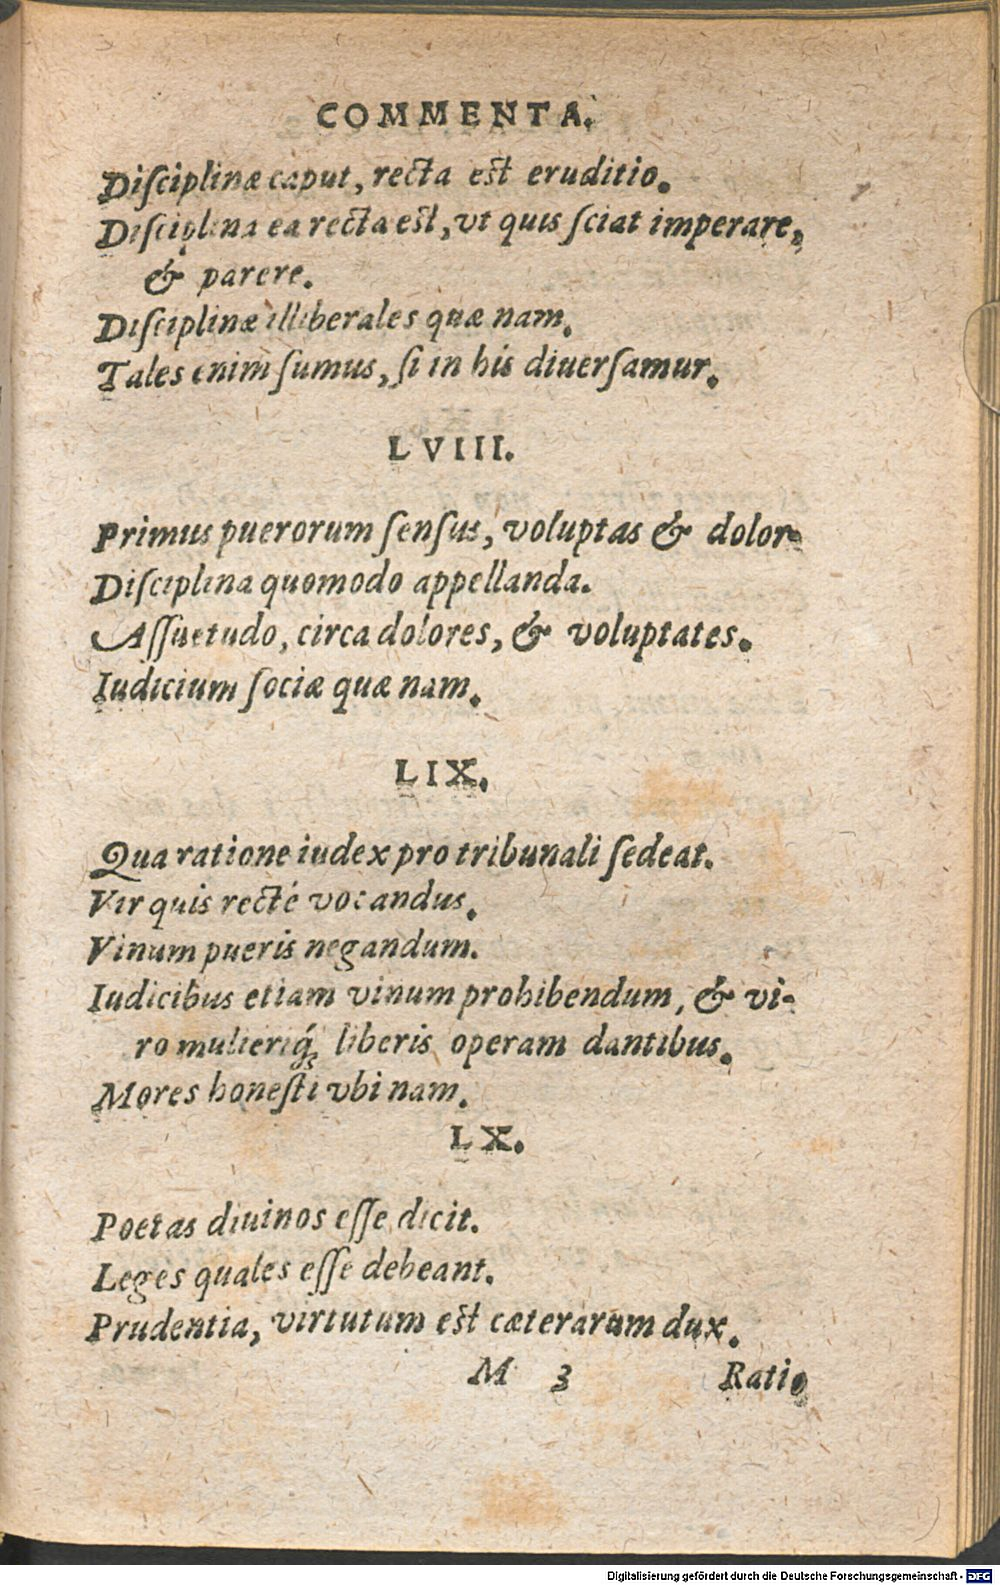 COMMENTA.
Diſciplinæ caput, recta est eruditio.
Diſciplina ea recta est, vt quis ſciat imperare,
& parere.
Diſciplinæ illiberales quæ nam.
Tales enim ſumus, ſi in his diuerſamur.
LVIII.
Primus puerorum ſenſus, voluptas & dolor.
Diſciplina quomodo appellanda.
Aſſuetudo, circa dolores, & voluptates.
Iudicium ſociæ quæ nam.
LIX.
Qua ratione iudex pro tribunali ſedeat.
Vir quis recté vocandus.
Vinum pueris negandum.
Iudicibus etiam vinum prohibendum, & vi-
ro mulieriq́; liberis operam dantibus.
Mores honeſti vbi nam.
LX.
Poetas diuinos eſſe dicit.
Leges quales eſſe debeant.
Prudentia, virtutum est cæterarum dux.
M 3 Ratio
Digitalisierung gefördert durch die Deutsche Forschungsgemeinschaft - DFG